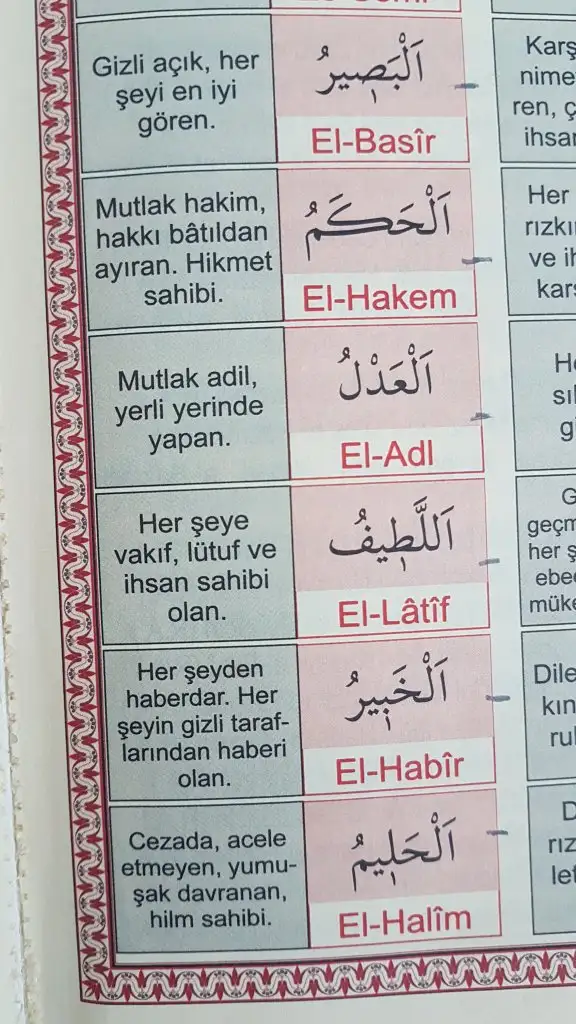 Gizli açık, her
şeyi en iyi
gören.
اَلْبَصِيرُ
El-Basîr
Mutlak hakim,
hakkı bâtıldan
ayıran. Hikmet
sahibi.
اَلْحَكَمُ
El-Hakem
Mutlak adil,
yerli yerinde
yapan.
اَلْعَدْلُ
El-Adl
Her şeye
vakıf, lütuf ve
ihsan sahibi
olan.
اَللَّطِيفُ
El-Lâtîf
Her şeyden
haberdar. Her
şeyin gizli taraf-
larından haberi
olan.
اَلْخَبِيرُ
El-Habîr
Cezada, acele
etmeyen, yumu-
şak davranan,
hilm sahibi.
اَلْحَلِيمُ
El-Halîm
ren,
Her
ve
her